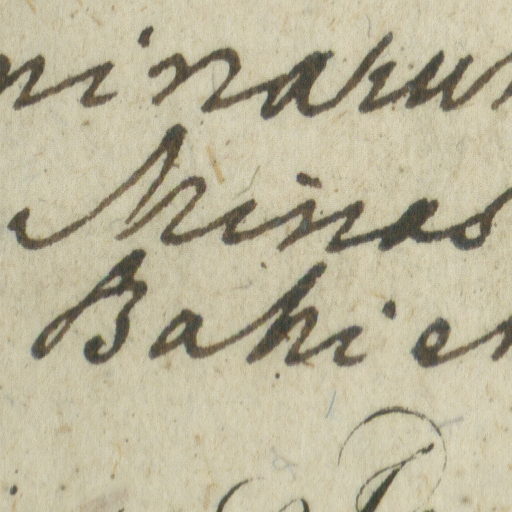 ninarum
Minas
Bahien